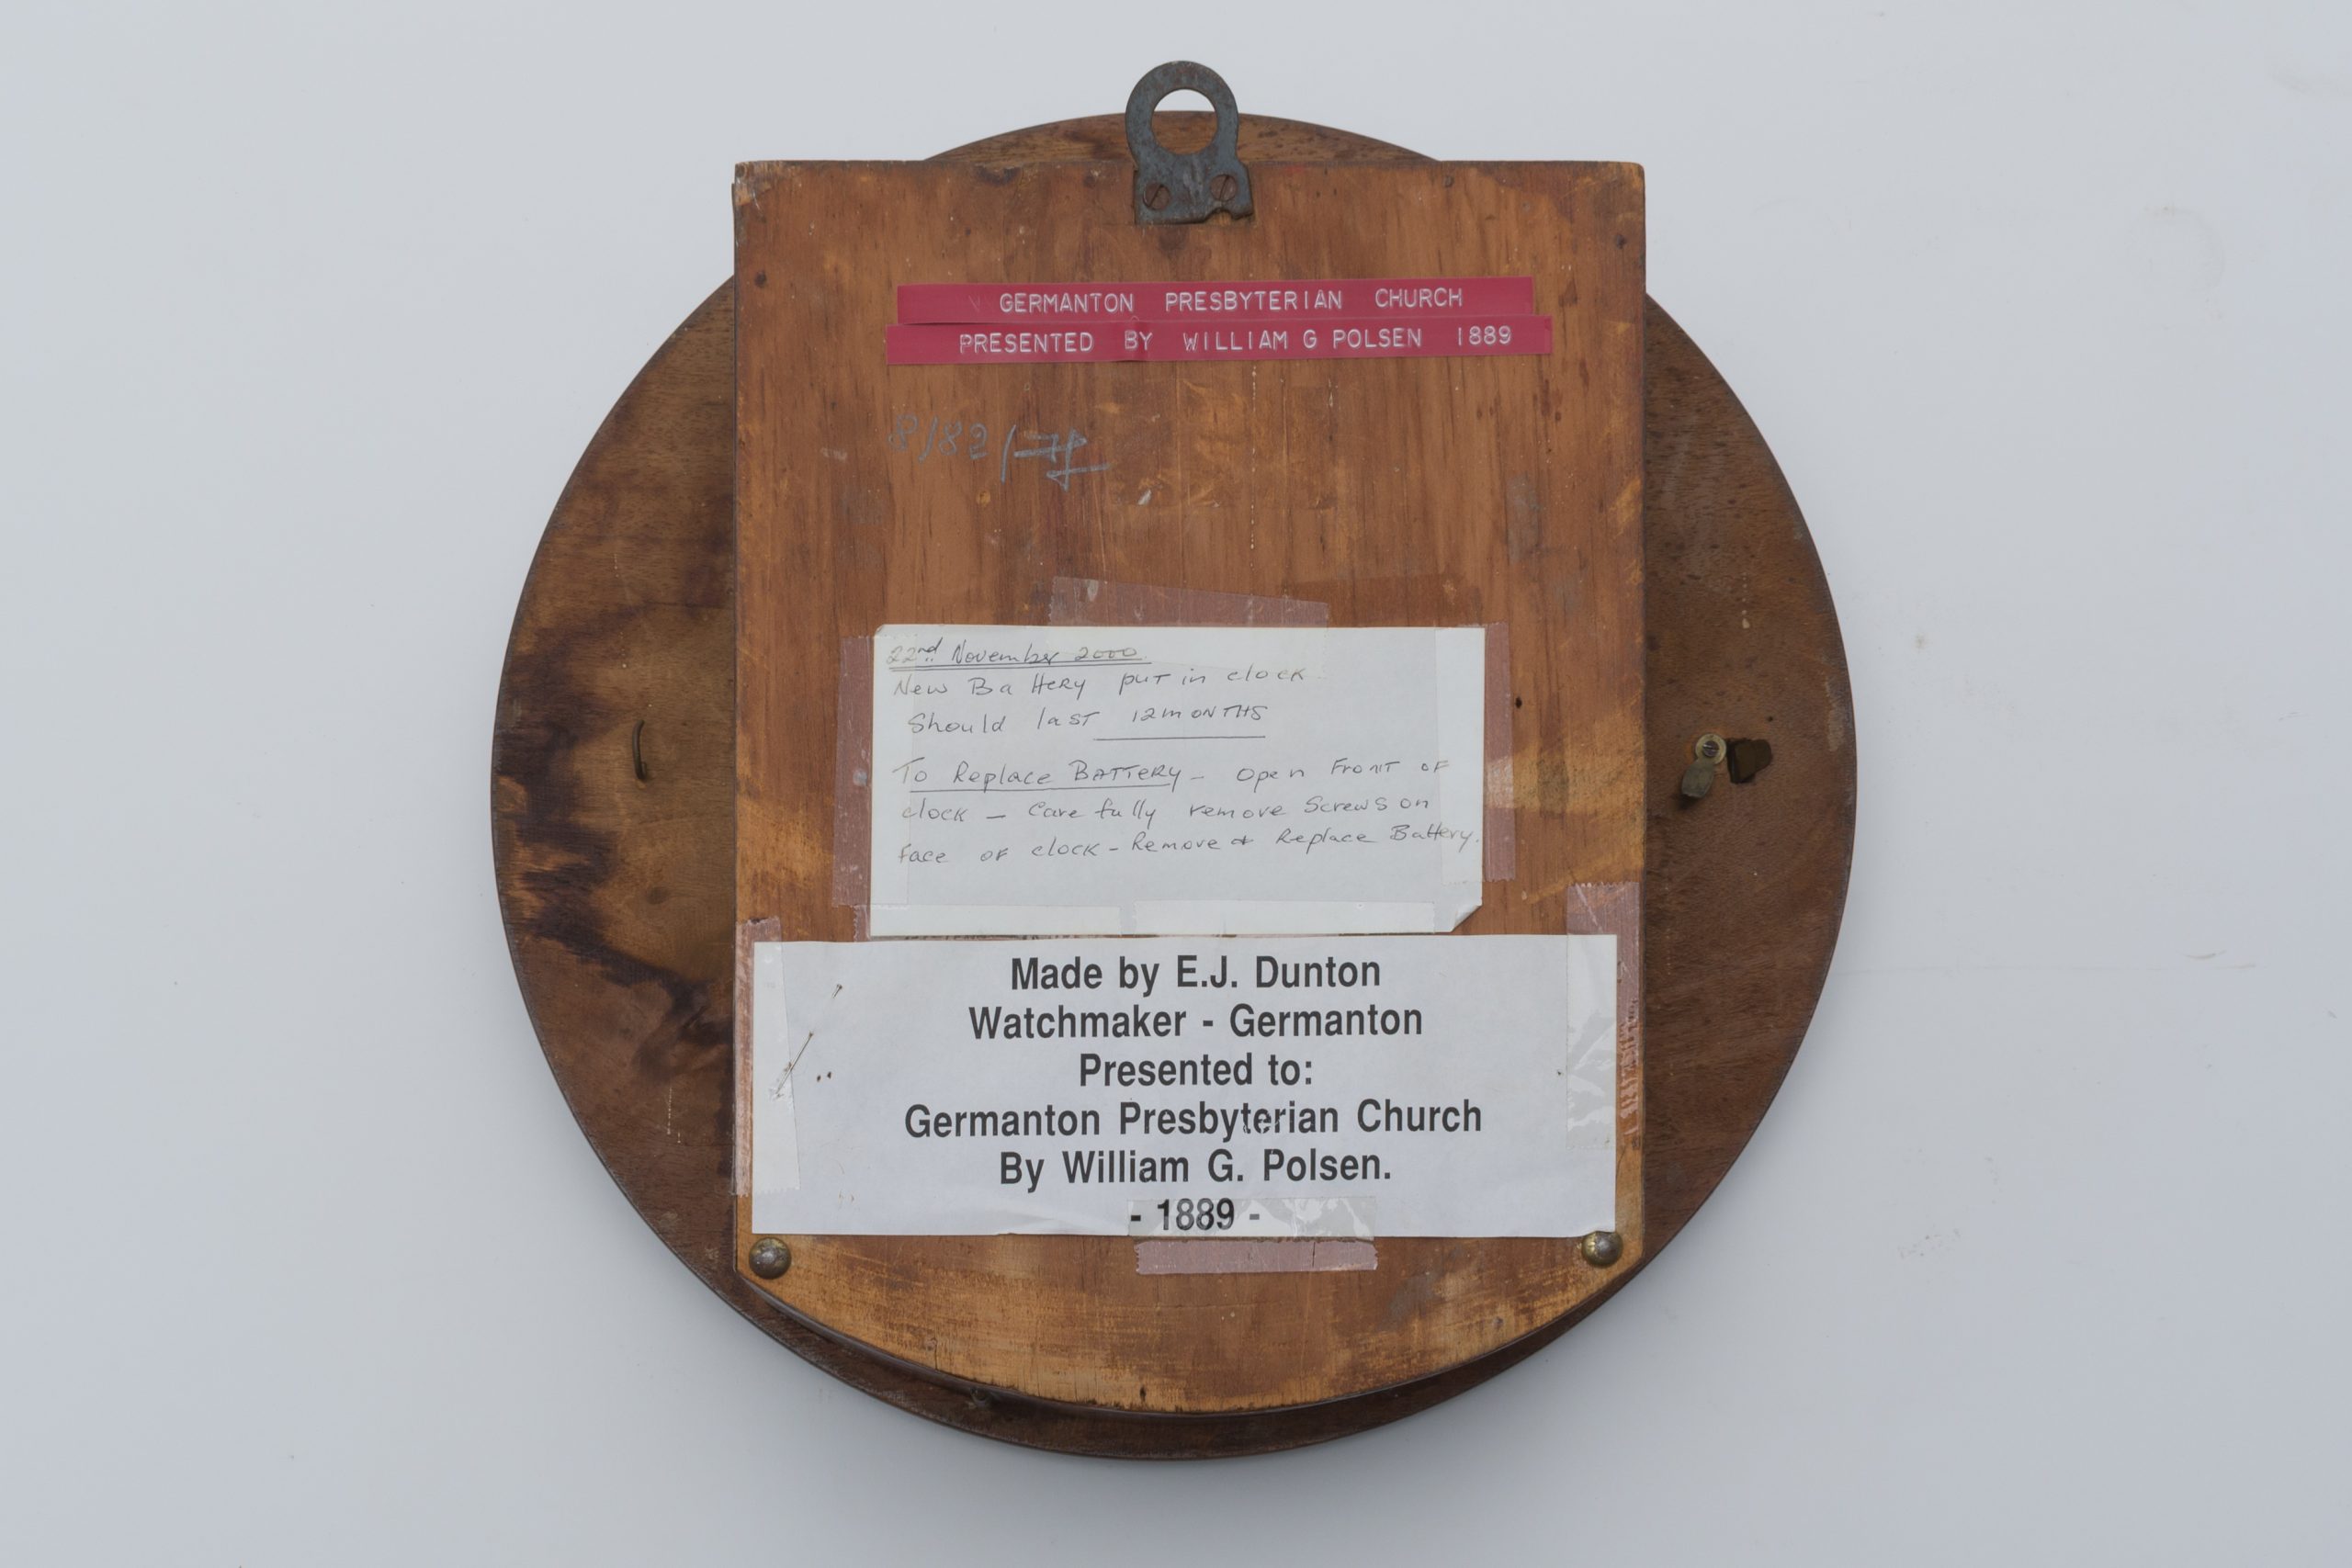 GERMANTON PRESBYTERIAN CHURCH
PRESENTED BY WILLIAM G POLSEN 1889
22nd November 2000
New Battery put in clock.
Should last 12 MONTHS
To Replace BATTERY - Open Front OF
clock - Carefully remove Screws on
Face OF clock - Remove & Replace Battery.
Made by E.J. Dunton
Watchmaker - Germanton
Presented to:
Germanton Presbyterian Church
By William G. Polsen.
- 1889 -